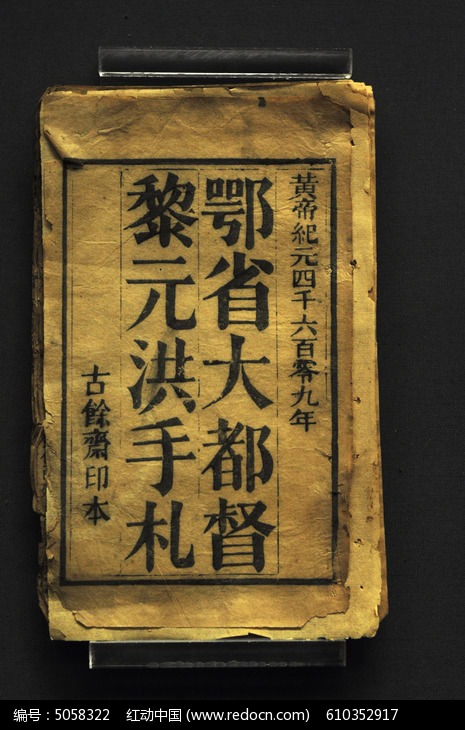 黃帝紀元四千六百零九年
鄂省大都督
黎元洪手札
古餘齋印本
编号：5058322 红动中国 (www.redocn.com) 610352917